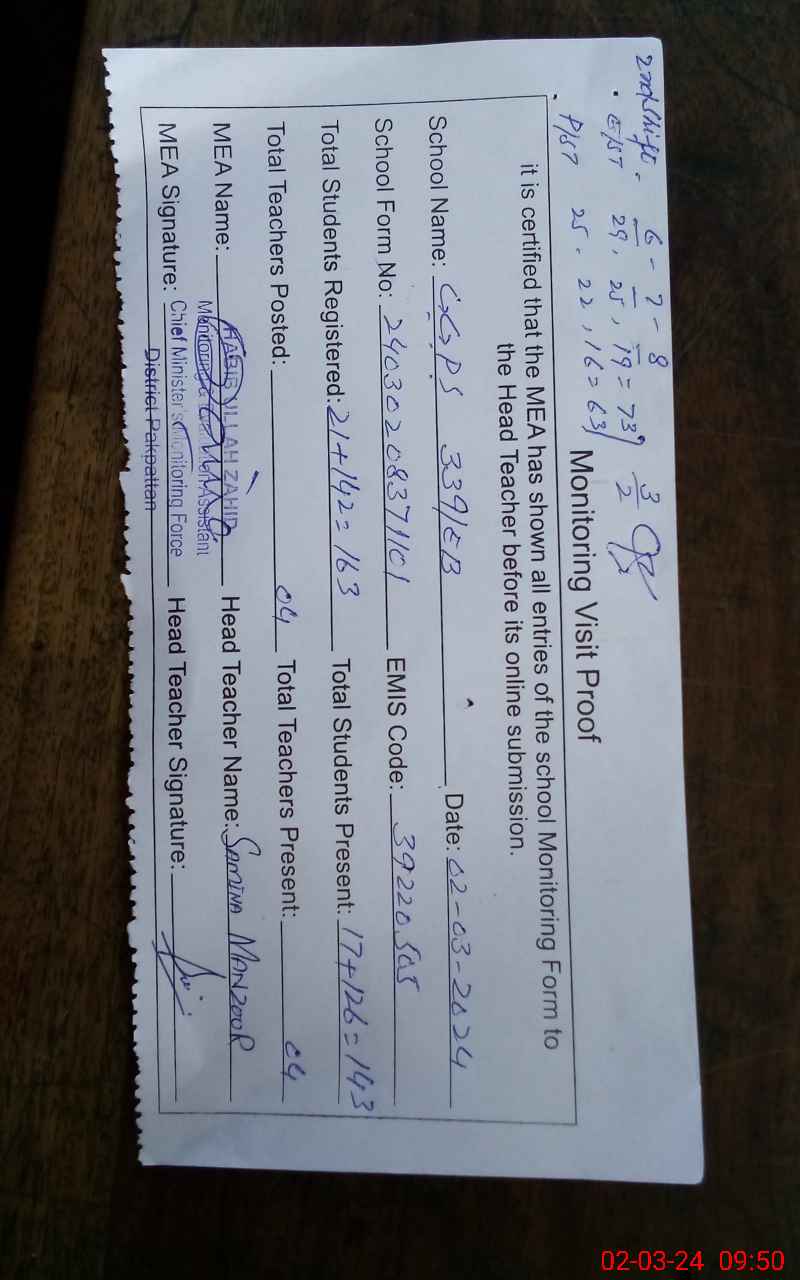 2nd Shift. 6 - 7 - 8
E/ST 29, 25, 19 = 73
P/ST 25, 22, 16 = 63
3/2
Monitoring Visit Proof
it is certified that the MEA has shown all entries of the school Monitoring Form to
the Head Teacher before its online submission.
School Name: GGPS 339/EB Date: 02-03-2024
School Form No: 2403020837101 EMIS Code: 39220505
Total Students Registered: 21+142=163 Total Students Present: 17+126=143
Total Teachers Posted: 04 Total Teachers Present: 04
MEA Name: HABIB ULLAH ZAHID Head Teacher Name: SAMINA MANZOOR
Monitoring & Assistant
MEA Signature: Chief Minister's Monitoring Force Head Teacher Signature:
District Pakpattan
02-03-24 09:50